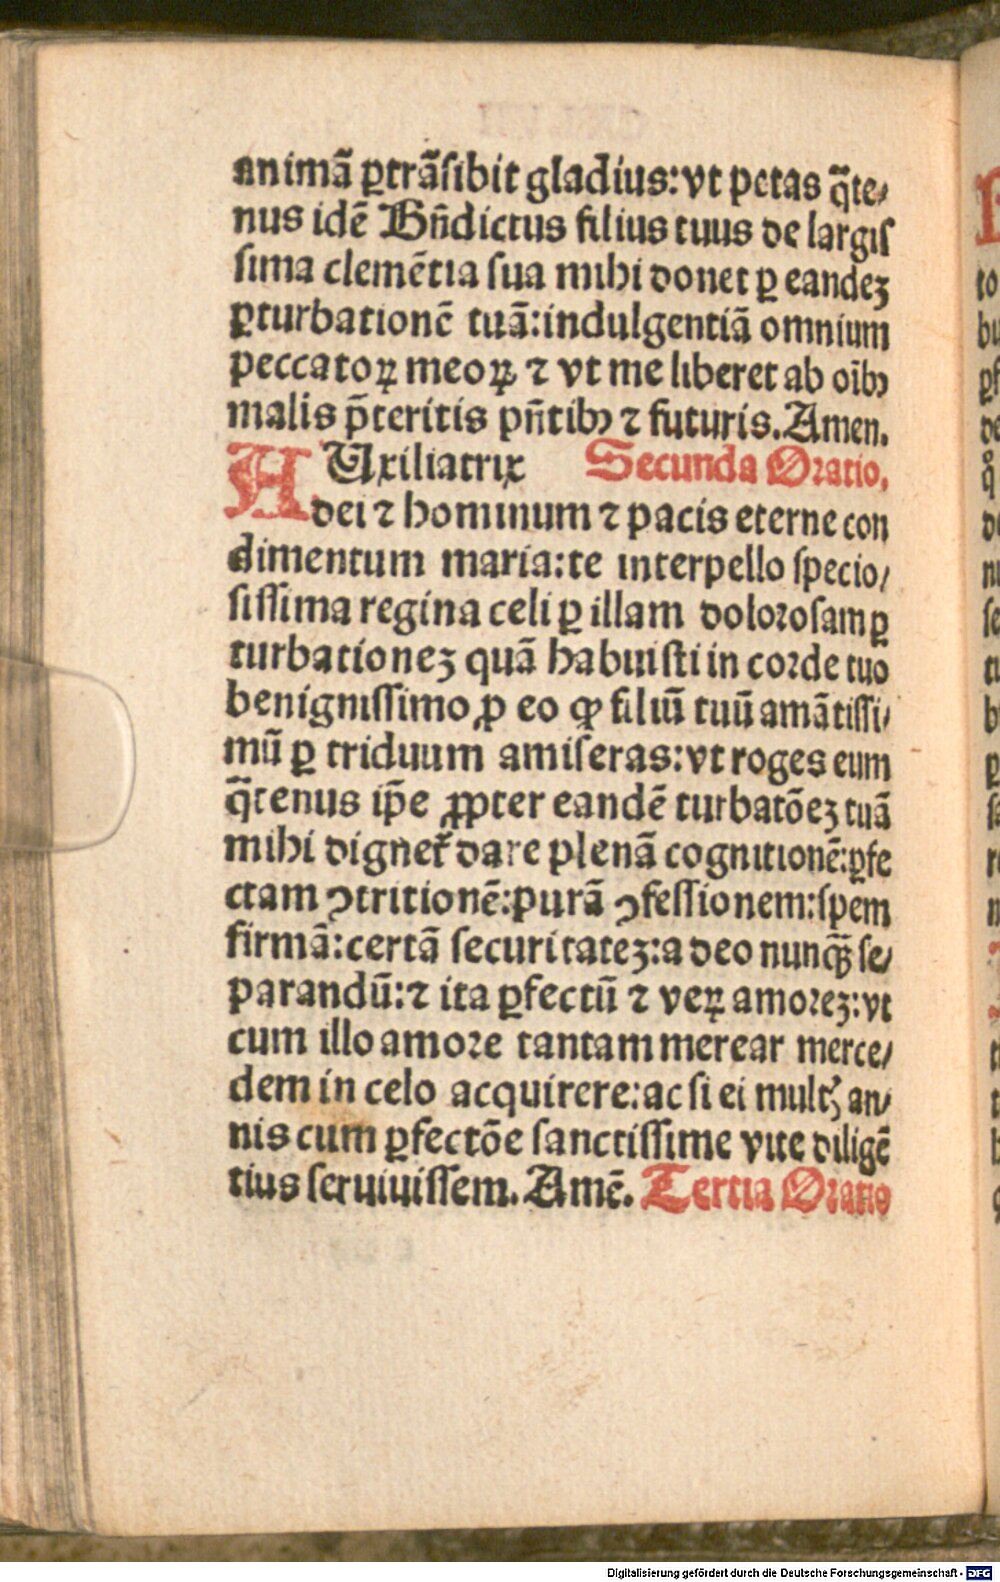 animā ꝑtrāſibit gladius: vt petas q̄te⸗
nus idē Bn̄dictus filius tuus de largiſ
ſima clemētia ſua mihi donet ꝑ eandeꝫ
ꝑturbationē tuā: indulgentiā omnium
peccatoꝝ meoꝝ ⁊ vt me liberet ab oībꝫ
malis p̄teritis pn̄tibꝫ ⁊ futuris. Amen.
AUxiliatrix Secunda Oratio.
dei ⁊ hominum ⁊ pacis eterne con
dimentum maria: te interpello specio⸗
ſiſſima regina celi ꝑ illam doloroſam ꝑ
turbationeꝫ quā habuiſti in corde tuo
benigniſſimo ꝓ eo ꝙ filiū tuū amātiſſi⸗
mū ꝑ triduum amiſeras: vt roges eum
q̄tenus ip̄e ꝓpter eandē turbatōeꝫ tuā
mihi dignet᷑ dare plenā cognitionē: ꝑfe
ctam ꝯtritionē: purā ꝯfeſſionem: ſpem
firmā: certā ſecuritateꝫ: a deo nunq̄ꝫ ſe⸗
parandū: ⁊ ita ꝑfectū ⁊ veꝝ amoreꝫ: vt
cum illo amore tantam merear merce⸗
dem in celo acquirere: ac ſi ei multꝭ an⸗
nis cum ꝑfectōe ſanctiſſime vite diligē
tius ſeruiuiſſem. Amē. Tertia Oratio
Digitalisierung gefördert durch die Deutsche Forschungsgemeinschaft - DFG